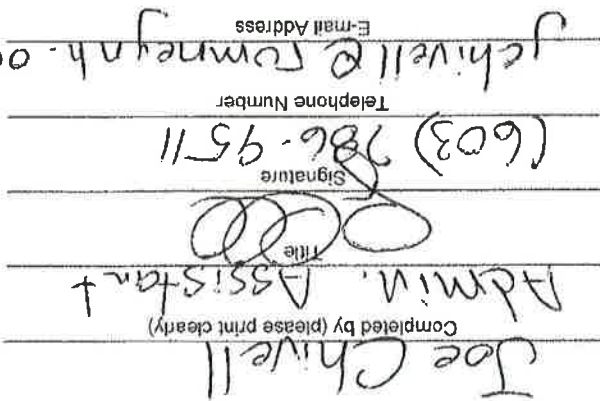 Joe Chivell
Completed by (please print clearly)
Admin. Assistant
Title
Signature
(603) 786-9511
Telephone Number
jchivell@rumneynh.o
E-mail Address